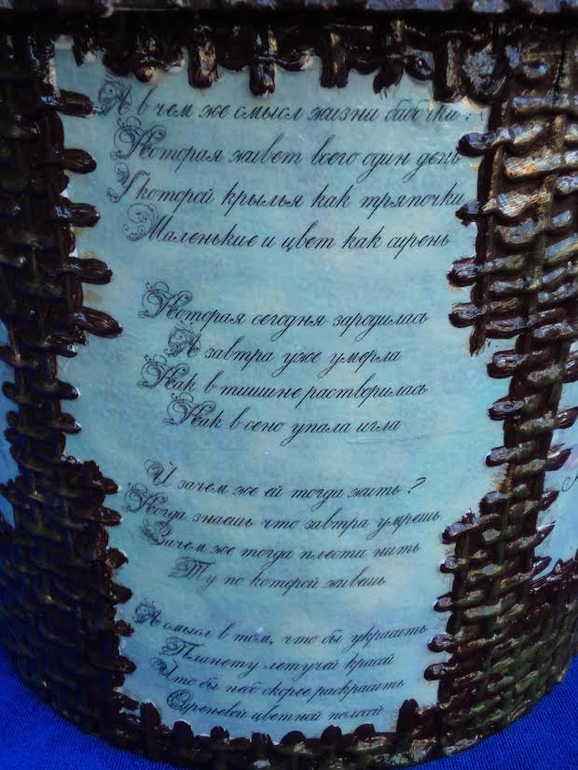 А в чем же смысл жизни бабочки?
Которая живет всего один день
У которой крылья как тряпочки
Маленькие и цвет как сирень
Которая сегодня зародилась
А завтра уже умерла
Как в тишине растворилась
Как в сено упала игла
И зачем же ей тогда жить?
Когда знаешь что завтра умрешь
Зачем же тогда плести нить
Ту по которой живешь
А смысл в том, что бы украсить
Планету летучей красой
Что бы небо скорее раскрасить
Сиреневой цветной полосой